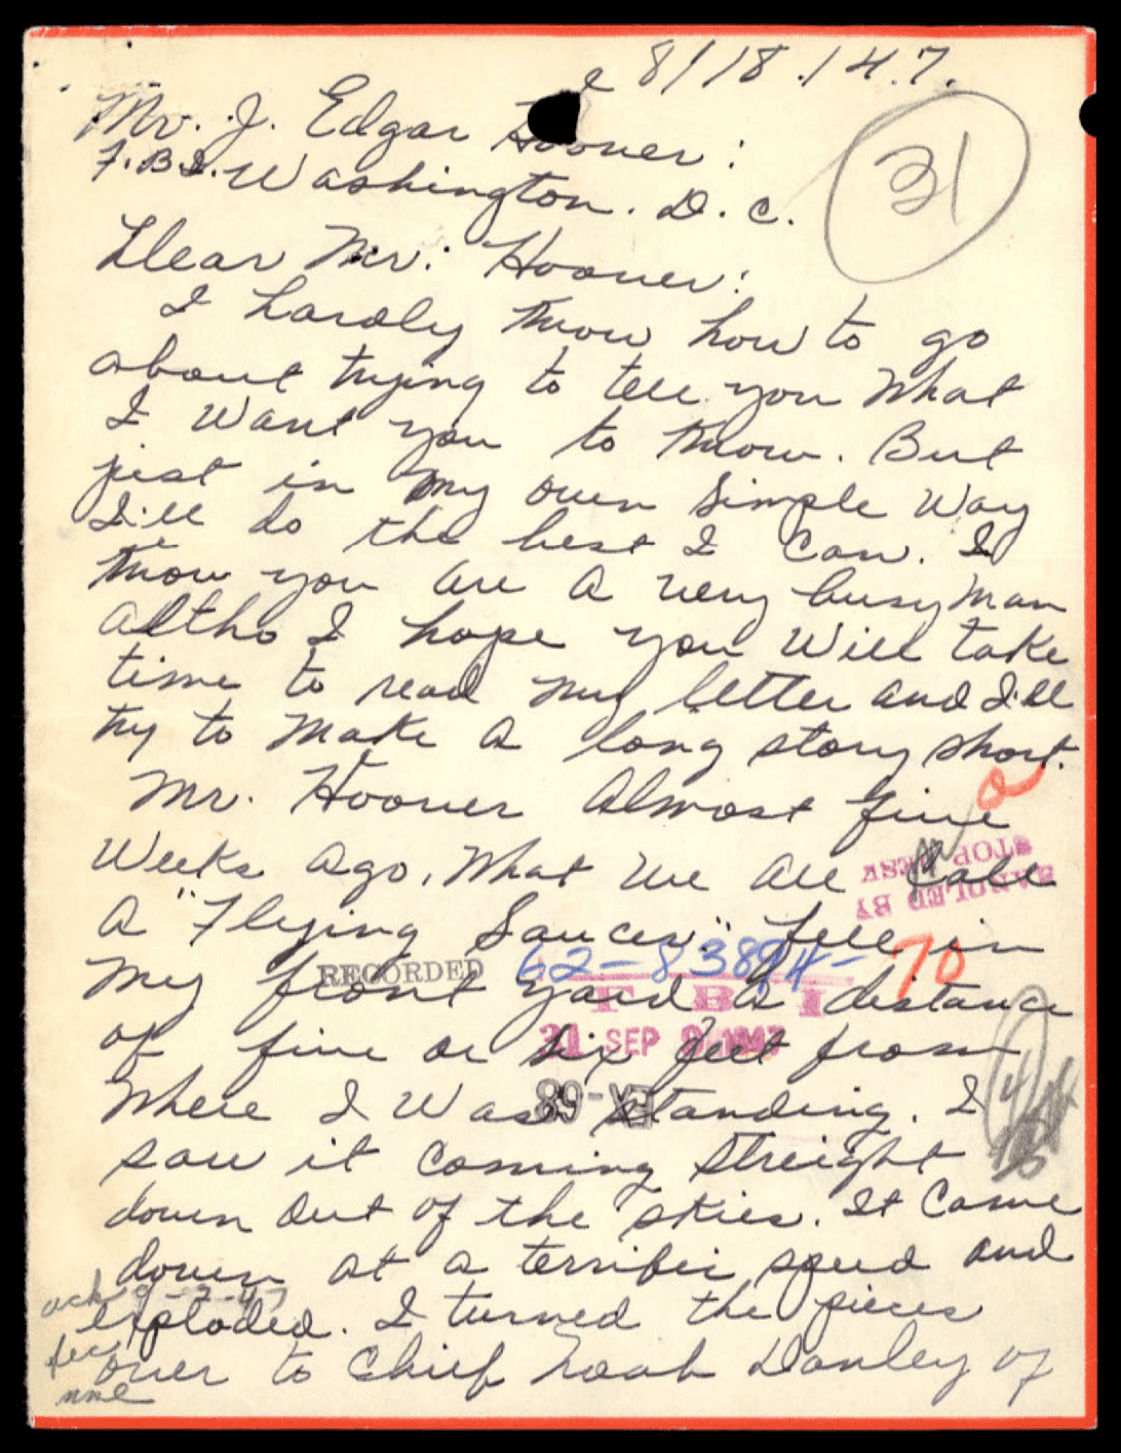 8/18/47.
Mr. J. Edgar Hoover:
F.B.I. Washington. D.C.
31
Dear Mr. Hoover:
I hardly know how to go
about trying to tell you what
I want you to know. But
just in my own simple way
I'll do the best I can. I
know you are a very busy man
altho I hope you will take
time to read my letter and I'll
try to make a long story short.
Mr. Hoover almost five
weeks ago, what we all call
HANDLED BY
STOP DESK
a "Flying Saucer" fell in
RECORDED
62-83894-70
my front yard a distance
F B I
of five or six feet from
31 SEP 1947
where I was standing. I
EX-68
saw it coming streight
down out of the skies. It came
down at a terrific speed and
ack 9-2-47
exploded. I turned the pieces
over to Chief Noah Danley of